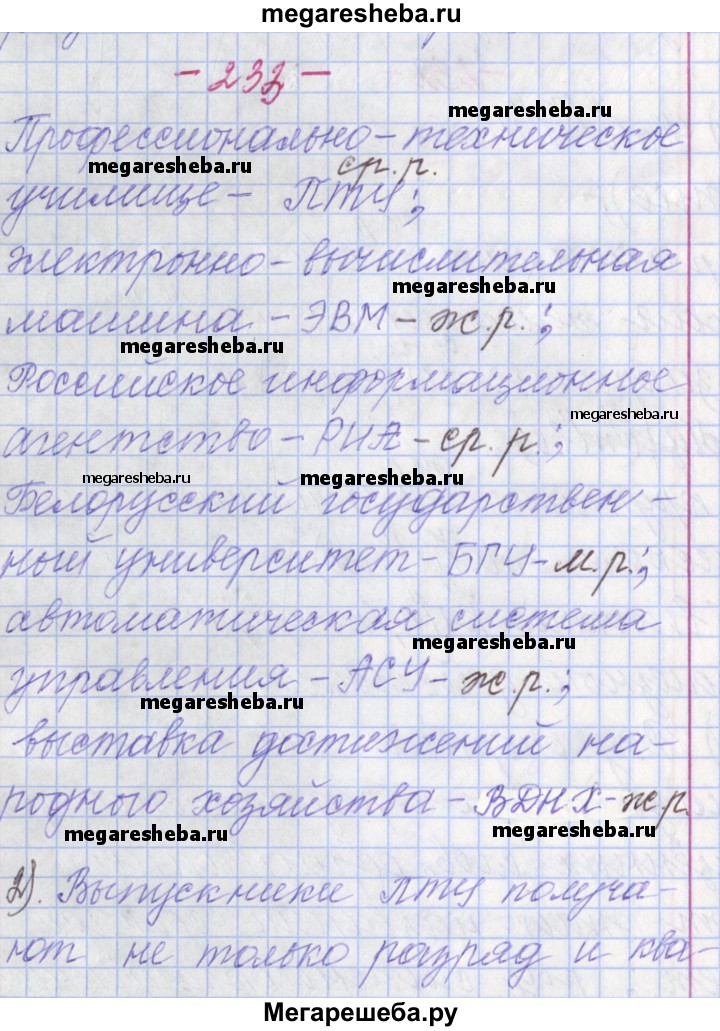 megaresheba.ru
- 233 -
megaresheba.ru
Профессионально - техническое
megaresheba.ru
ср. р.
училище - ПТУ;
электронно - вычислительная
megaresheba.ru
машина - ЭВМ - ж. р.;
megaresheba.ru
Российское информационное
megaresheba.ru
агентство - РИА - ср. р.;
megaresheba.ru
megaresheba.ru
Белорусский государствен -
ный университет - БГУ - м. р.;
автоматическая система
megaresheba.ru
управления - АСУ - ж. р.;
megaresheba.ru
выставка достижений на-
родного хозяйства - ВДНХ - ж р
megaresheba.ru
megaresheba.ru
2). Выпускники ПТУ получа-
ют не только разряд и ква-
Мегарешеба.ру